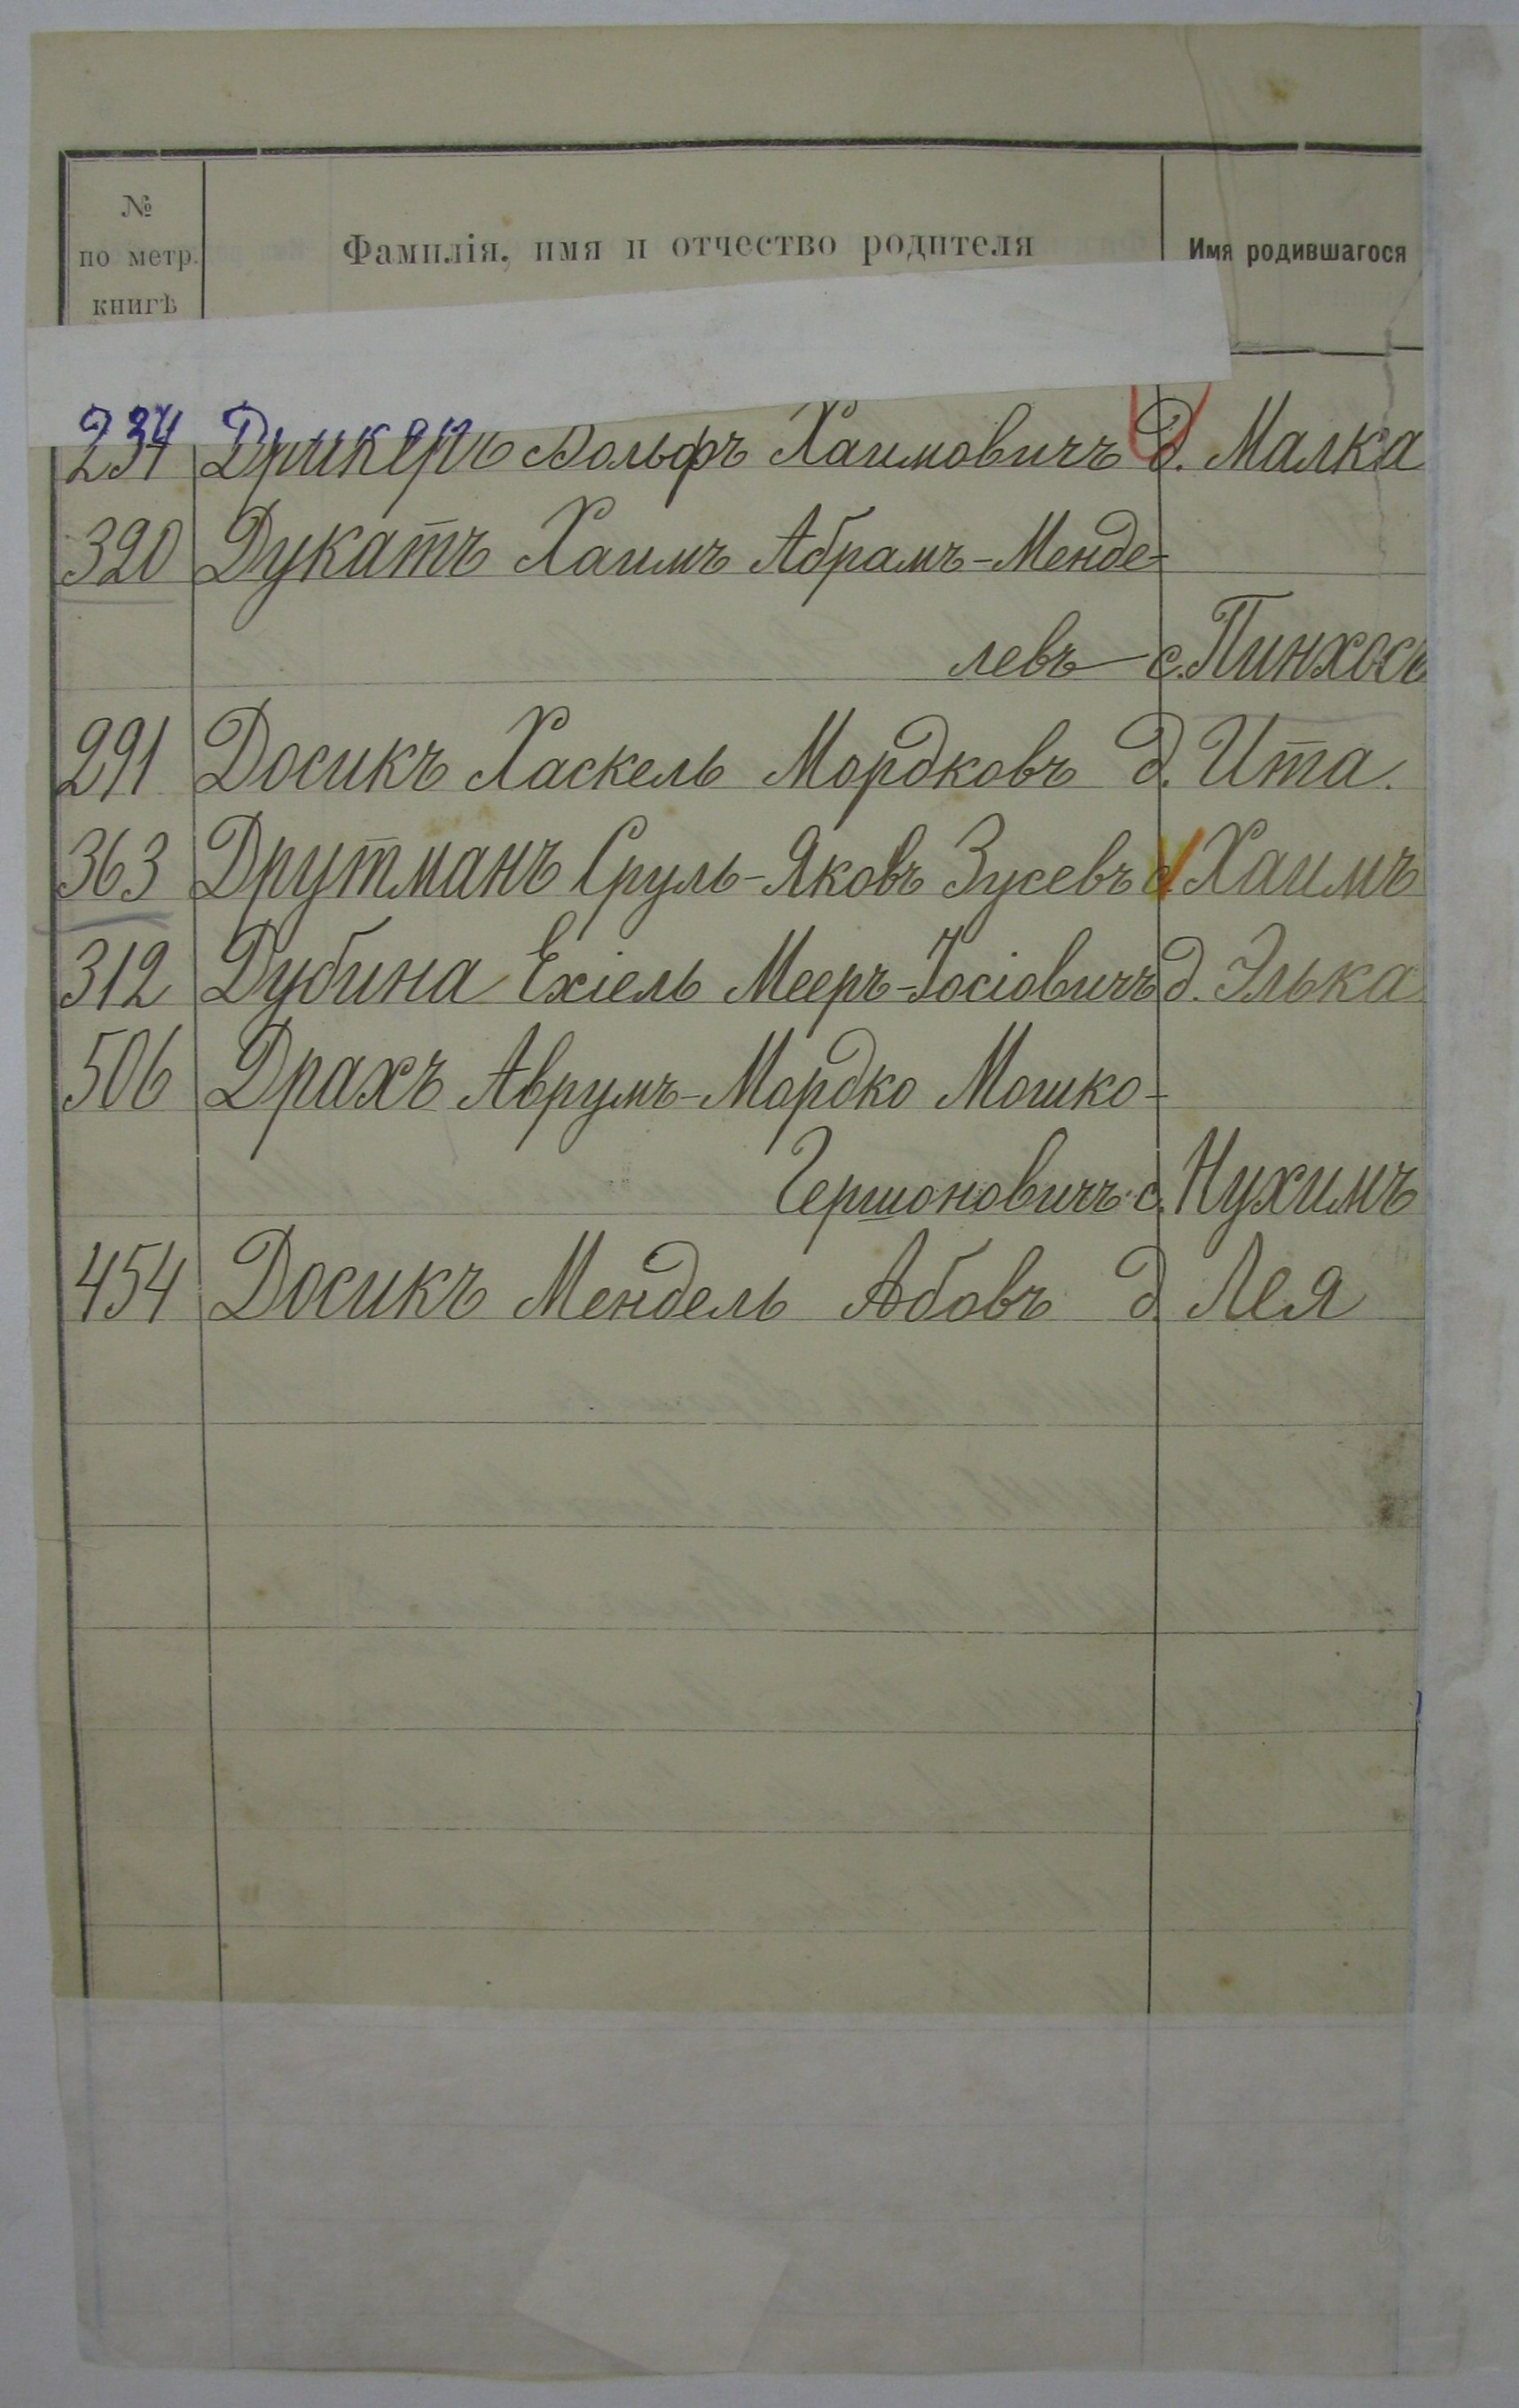 №
по метр.
книгѣ
Фамилія, имя и отчество родителя
Имя родившагося
234 Друкеръ Вольфъ Хаимовичъ д. Малка
320 Дукатъ Хаимъ Абрамъ-Менде-
левъ с. Пинхосъ
291 Досикъ Хаскель Мордковъ д. Ита.
363 Друтманъ Сруль-Яковъ Зусевъ с. Хаимъ
312 Дубина Ехіель Мееръ-Іосіовичъ д. Элька
506 Драхъ Аврумъ-Мордко Мошко-
Гершоновичъ с. Нухимъ
454 Досикъ Мендель Абовъ д. Лея